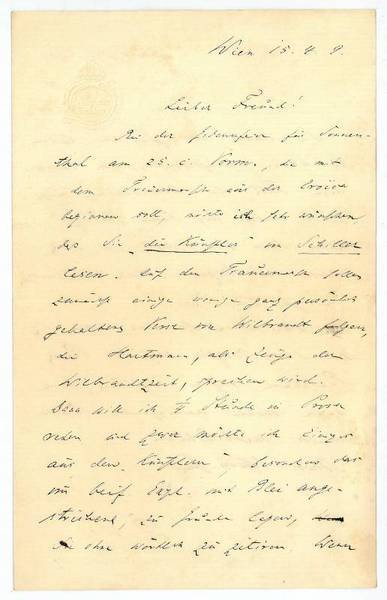 Wien 15. 4. 9.
Lieber Freund!
Bei der Gedenkfeier für Sonnen-
thal am 25. c. Vorm., die mit
dem Trauermarsch aus der Eroica
beginnen soll, möchte ich sehr wünschen,
daß Sie "die Künstler" von Schiller
lesen. Auf den Trauermarsch sollen
zunächst einige wenige ganz persönlich
gehaltene Verse von Wilbrandt folgen,
die Hartmann, als Zeuge der
Wilbrandtzeit, sprechen wird.
Dann will ich 1/4 Stunde in Prosa
reden und zwar möchte ich Einiges
aus den "Künstlern" besonders das
im Expl. mit Blei ange-
strichene, zu Grunde legen,
sie ohne wörtlich zu zitiren. Wenn